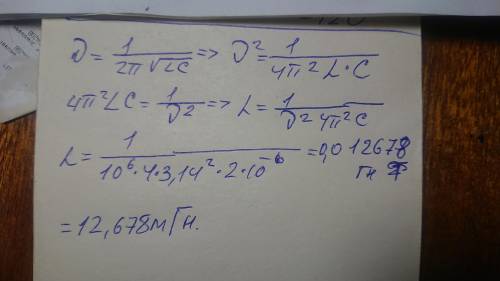 D = 1/(2π√LC) => D² = 1/(4π²L·C)
4π²LC = 1/D² => L = 1/(D² 4π²C)
L = 1/(10⁶·4·3,14²·2·10⁻⁶) = 0,012678 Гн
= 12,678 мГн.